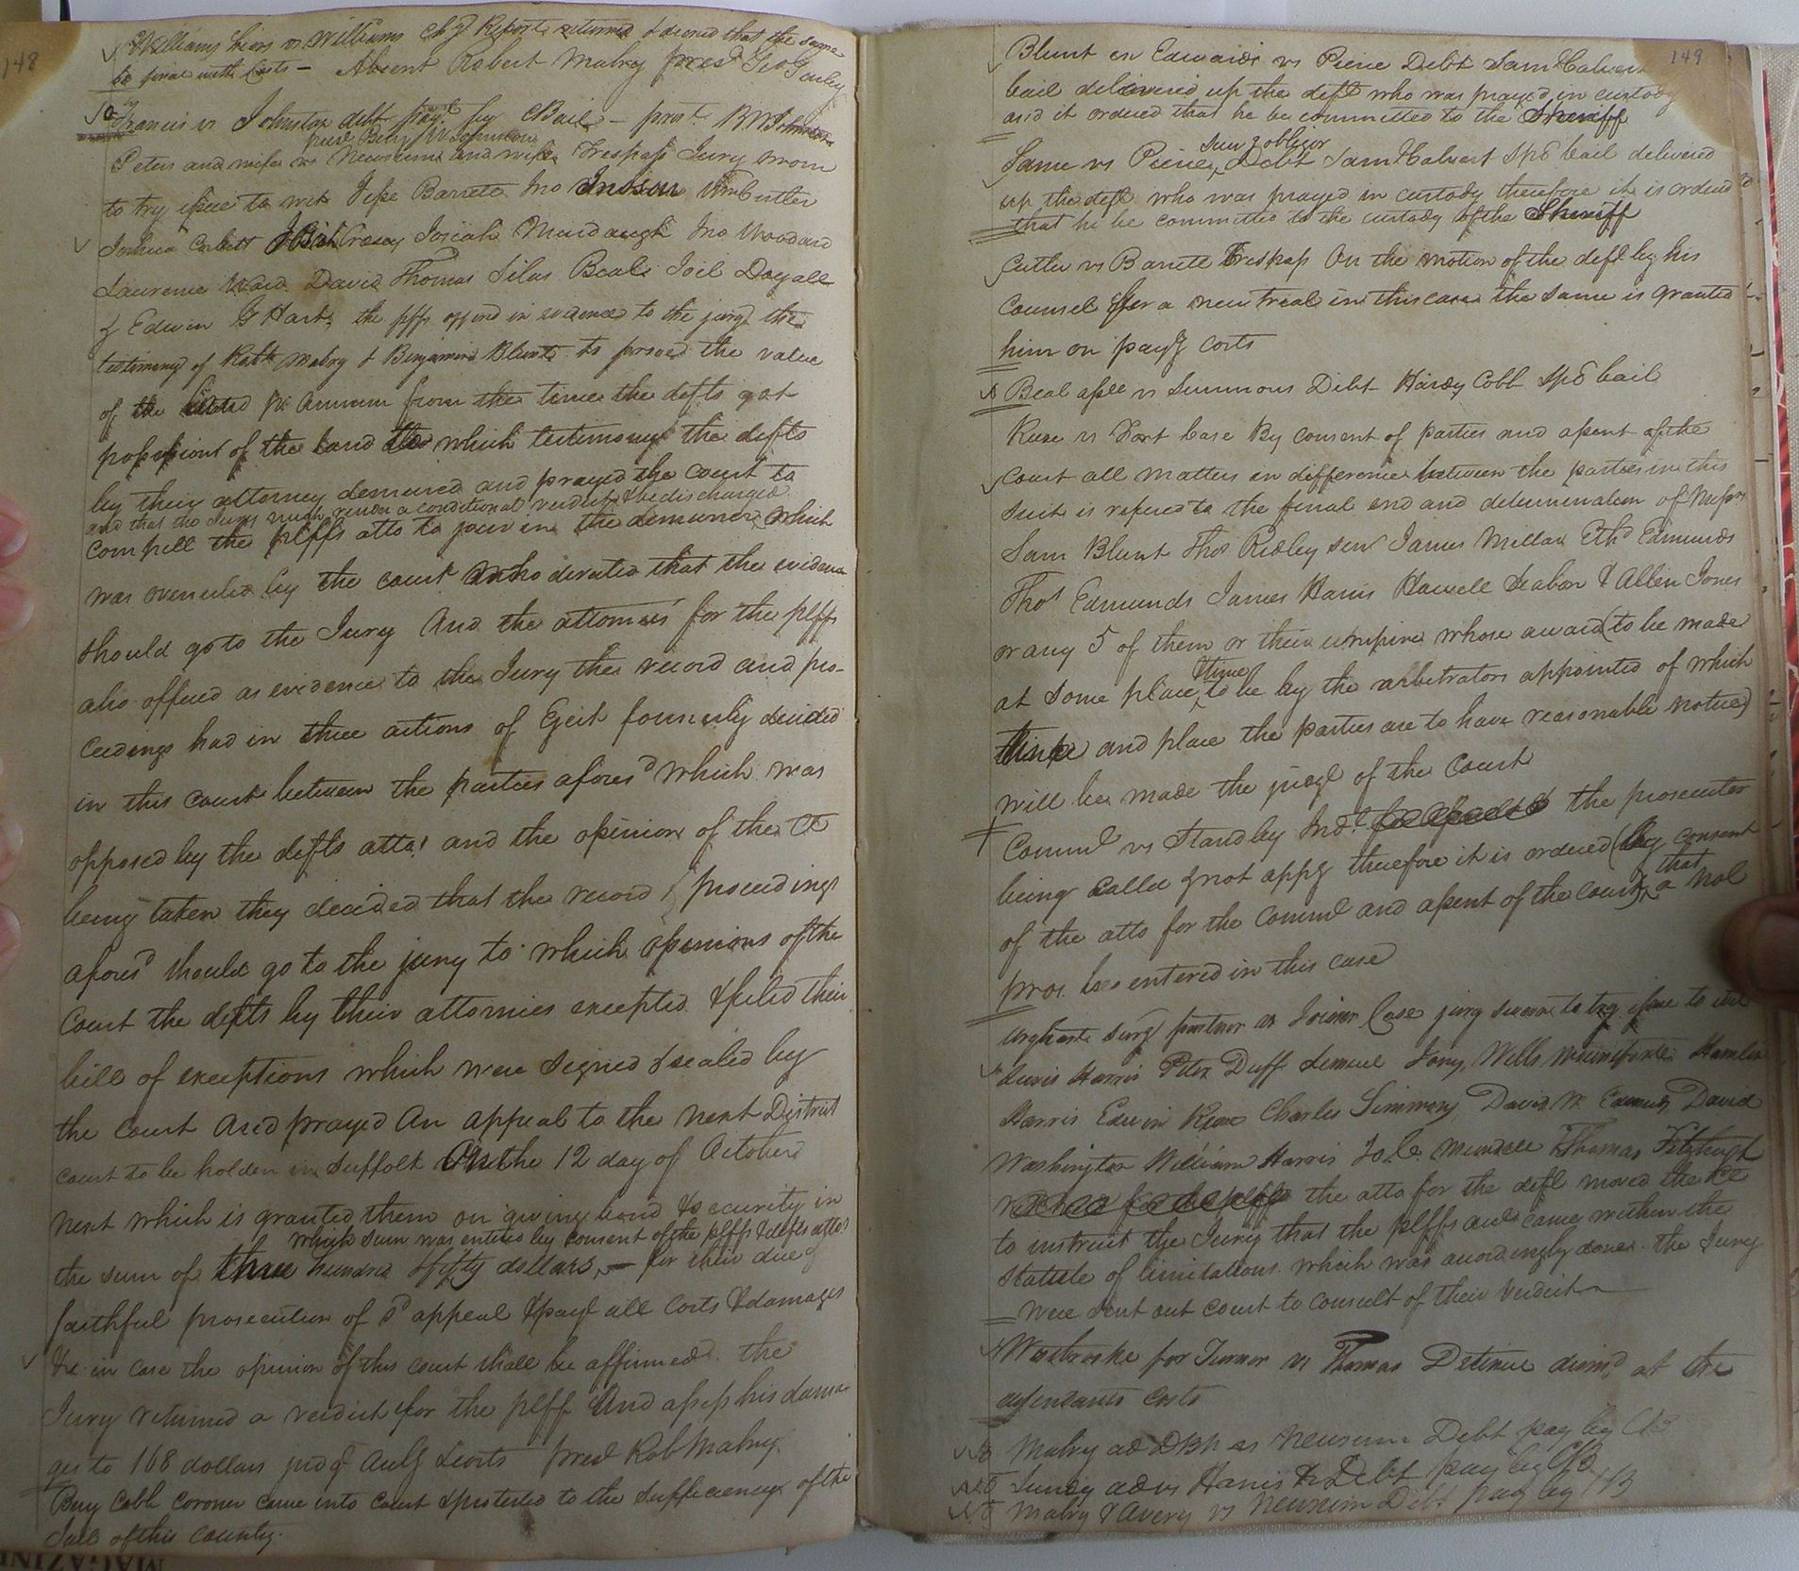 148
Williams heirs vs Williams Chy Report returned & decreed that the same
be final with Costs — Absent Robert Mabry presd Geo Gurley
Francis vs Johnston debt payt by Bail — prest B W Johnston
prest Benj W Johnston
Peters and wife vs Newsum and wife Trespass Jury sworn
to try issue to wit Jesse Barrett Jno Inoson Wm Cutler
Joshua Corbett Josiah Murdaugh Jno Woodard
Laurence Ward David Thomas Silas Beals Joil Doyall
& Edwin G Hart, the plffs offered in evidence to the jury the
testimony of Robt Mabry & Benjamin Blunt to proove the value
of the pr Annum from the time the defts got
possession of the land to which testimony the defts
by their attorney demured and prayed the court to
and that the Jury might render a conditional verdict & be discharged
compell the plffs atto to join in the demurrer which
was overruled by the court who directed that the evidence
should go to the Jury And the attornies for the plffs
also offered as evidence to the Jury the record and pro-
ceedings had in three actions of Eject formerly decided
in this court between the parties aforesd which was
opposed by the defts attos and the opinion of the Ct
being taken they decided that the record & proceedings
aforesd should go to the jury to which opinions of the
Court the defts by their attornies excepted & filed their
bill of exceptions which were signed & sealed by
the court And prayed An appeal to the next District
court to be holden in Suffolk On the 12 day of October
next which is granted them on giving bond & security in
which sum was entered by consent of the plffs & defts attos
the sum of three hundred & fifty dollars, — for their due &
faithful prosecution of sd appeal & payt all costs & damages
&c in case the opinion of this court shall be affirmed. the
Jury returned a verdict for the plff And assess his dama-
ges to 168 dollars judgt Aulg & costs presd Rob Mabry.
Benj Cobb coroner came into court & protested to the sufficiency of the
Jail of this county.
149
Blunt ex Edwards vs Pierce Debt Sam Calvert
bail delivered up the deft who was prayed in custody
and it ordered that he be committed to the Sheriff
surv obligor
Same vs Pierce, Debt Sam Calvert spd bail delivered
up the deft who was prayed in custody therefore it is ordered
that he be committed to the custody of the Sheriff
Cutler vs Barrett Trespass On the motion of the deft by his
counsel for a new treal in this case the same is granted
him on payg costs
Beal assee vs Summons Debt Hardy Cobb spd bail
Ruse vs Fort Case By consent of parties and assent of the
court all matters in difference between the parties in this
suit is refered to the final end and determination of Messrs
Sam Blunt Thos Ridley senr James Millar Ethd Edmunds
Thos Edmunds James Harris Howell Seabon & Allen Jones
or any 5 of them or their umpire whose award (to be made
at some place & time to be by the arbetrators appointed of which
time and place the parties are to have reasonable notice)
will be made the judgt of the Court
Commth vs Standby Indt the prosecuter
being called & not appg therefore it is ordered (by consent
of the atto for the Commth and assent of the court), that a nol
pros. be entered in this case
Urqhart survg partner vs Joiner Case jury sworn to try issue to wit
Lewis Harris Peter Duff Lemuel Jony, Wells Hamlin
Harris Edwin Ruse Charles Simmons, David W Edmds, David
Washington William Harris Jo. C. Mundell & Thomas Fitzhugh
the atto for the deft moved the Ct
to instruct the Jury that the plffs acct came within the
statute of limitations which was accordingly done. the Jury
were sent out court to consult of their verdict —
Westbroke for Turnor vs Thomas Detinue dismd at the
defendants costs
Mabry ad DBN vs Newsum Debt pay by CB
Jundy adm vs Harris &c Debt pay by CB
Mabry & Avery vs Newsum Debt pay by HB
MAGAZINE